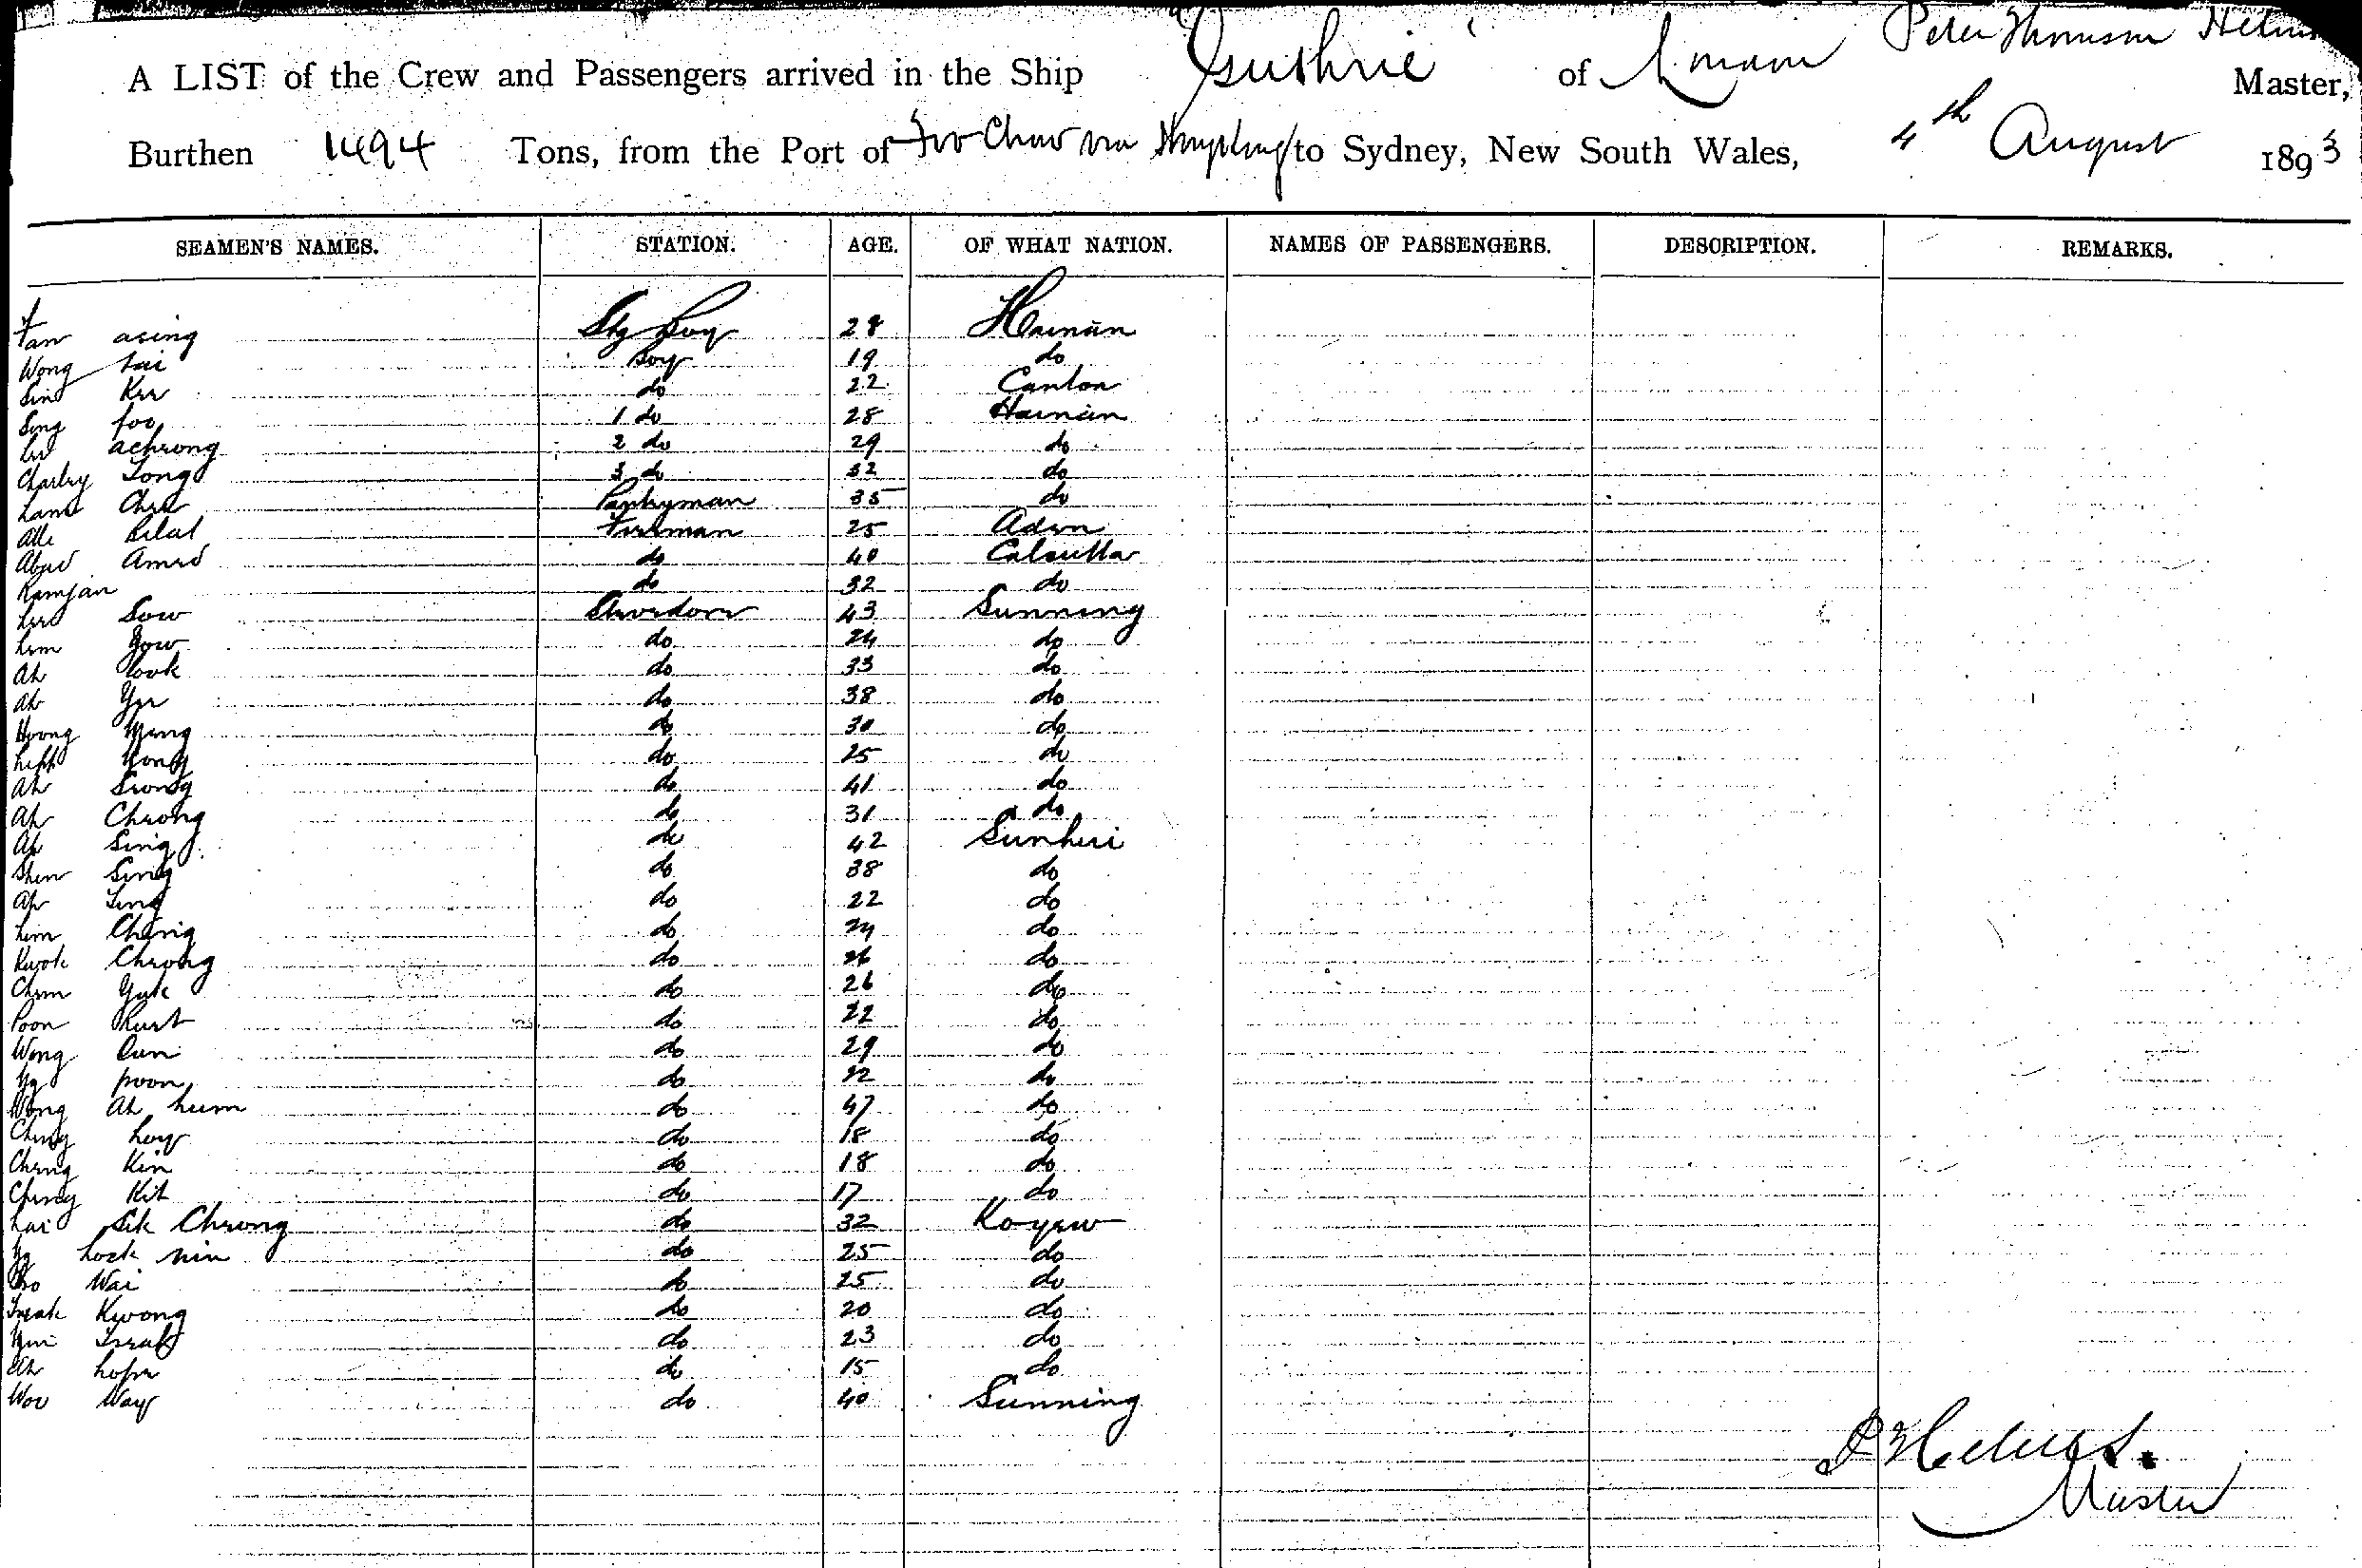 Peter Thomson
A LIST of the Crew and Passengers arrived in the Ship "Guthrie" of Master,
Burthen 1494 Tons, from the Port of Foo Chow via to Sydney, New South Wales, 4th August 1893
SEAMEN'S NAMES. STATION. AGE. OF WHAT NATION. NAMES OF PASSENGERS. DESCRIPTION. REMARKS.
Tan asing Boy 28 Hainan
Wong Boy 19 do
Sing Kee do 22 Canton
Song foo 1 do 28 Hainan
Lee acheong 2 do 29 do
Charley Tong 3 do 32 do
Lam Chee Pantryman 35 do
Alli Bilal Fireman 25 Aden
Abad Amed do 40 Calcutta
Ramjan do 32 do
Lee Sow Stevedore 43 Sunning
Lem Gow do 24 do
Ah do 33 do
Ah Yee do 38 do
Hoong Meng do 30 do
do 25 do
Ah Seong do 41 do
Ah Cheong do 31 do
Ah Sing do 42 Sunhui
Shen Sing do 38 do
Ah Ting do 22 do
Lem Ching do 24 do
Kwok Cheong do 26 do
Chem Yuk do 26 do
Poon do 22 do
Wong Lun do 29 do
Ng poon do 22 do
Wong Ah hum do 47 do
Ching hoy do 18 do
Ching Kin do 18 do
Ching Kit do 17 do
Lai Sik Cheong do 32 Koyew
Ng hock nin do 25 do
Ho Wai do 25 do
Tseak Kwong do 20 do
do 23 do
Ah do 15 do
Woo Way do 40 Sunning
Master